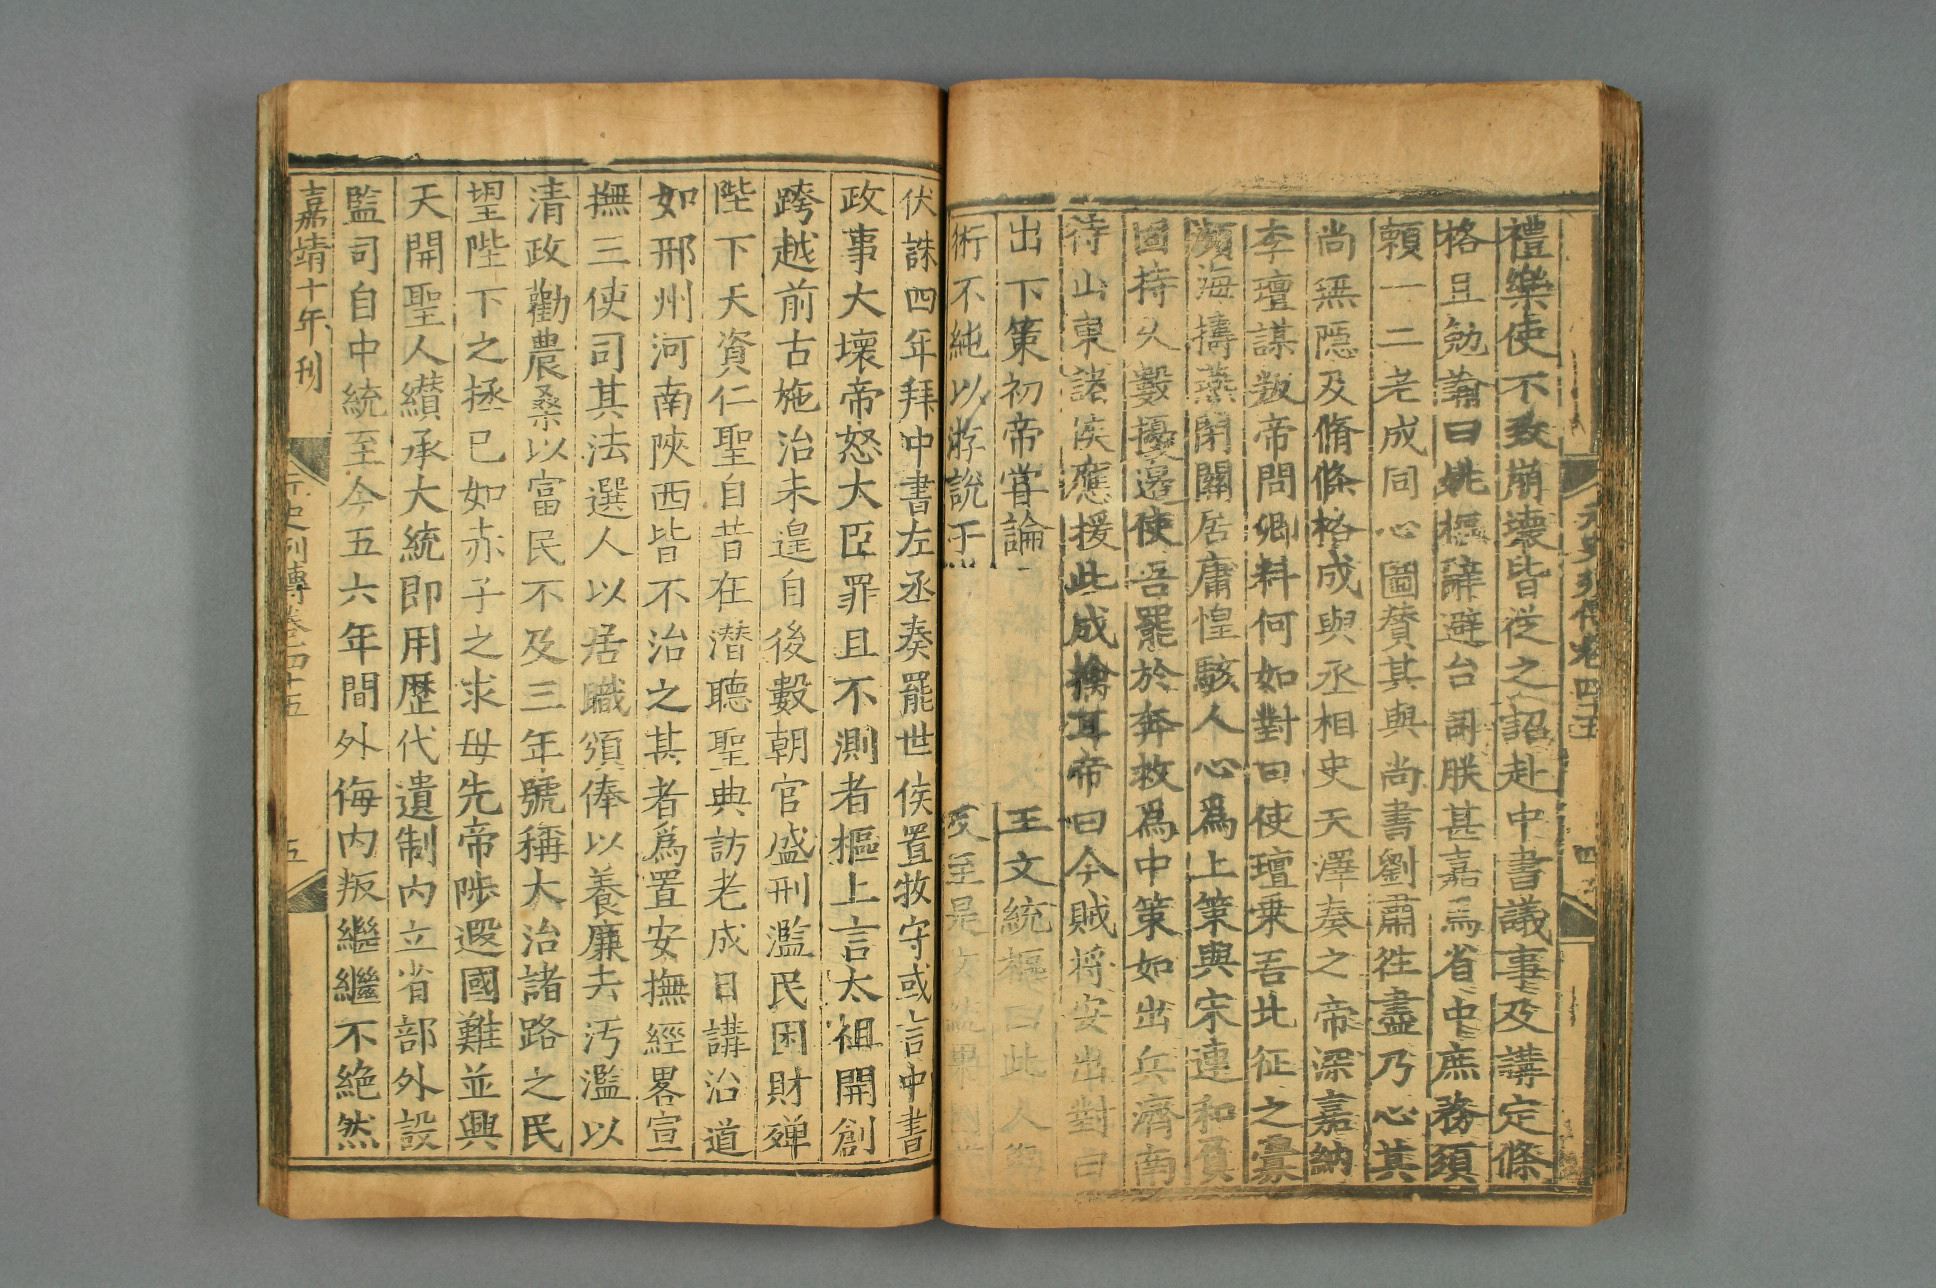 禮樂使不致崩壞皆從之詔赴中書議事及講定條
格且勉諭曰姚樞辭避台司朕甚嘉焉省中庶務須
賴一二老成同心圖贊其與尚書劉肅徃盡乃心其
尚無隱及脩條格成與丞相史天澤奏之帝深嘉納
李璮謀叛帝問卿料何如對曰使璮乗吾北征之釁
瀕海擣燕閉關居庸惶駭人心爲上策與宋連和負
固持久數擾邊使吾罷於奔救爲中策如出兵濟南
待山東諸侯應援此成擒耳帝曰今賊將安出對曰
出下策初帝甞論
王文統樞曰此人學
術不純以游說于
至是文統果
伏誅四年拜中書左丞奏罷世侯置牧守或言中書
政事大壞帝怒大臣罪且不測者樞上言太祖開創
跨越前古施治未遑自後數朝官盛刑濫民困財殫
陛下天資仁聖自昔在潛聽聖典訪老成日講治道
如邢州河南陝西皆不治之甚者爲置安撫經畧宣
撫三使司其法選人以居職頒俸以養廉去汚濫以
清政勸農桑以富民不及三年號稱大治諸路之民
望陛下之拯已如赤子之求母先帝陟遐國難並興
天開聖人纘承大統即用歷代遺制內立省部外設
監司自中統至今五六年間外侮內叛繼繼不絶然
嘉靖十年刊
元史列傳卷四十五
五